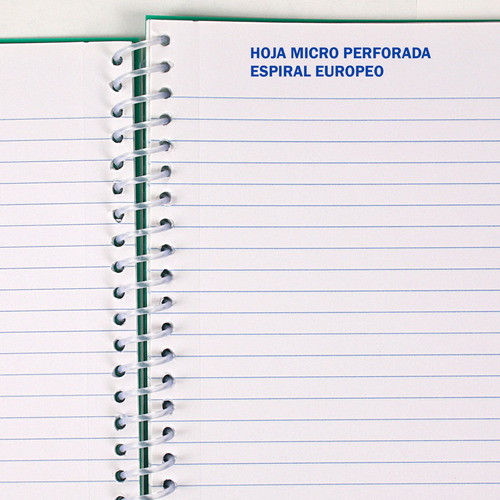 HOJA MICRO PERFORADA
ESPIRAL EUROPEO